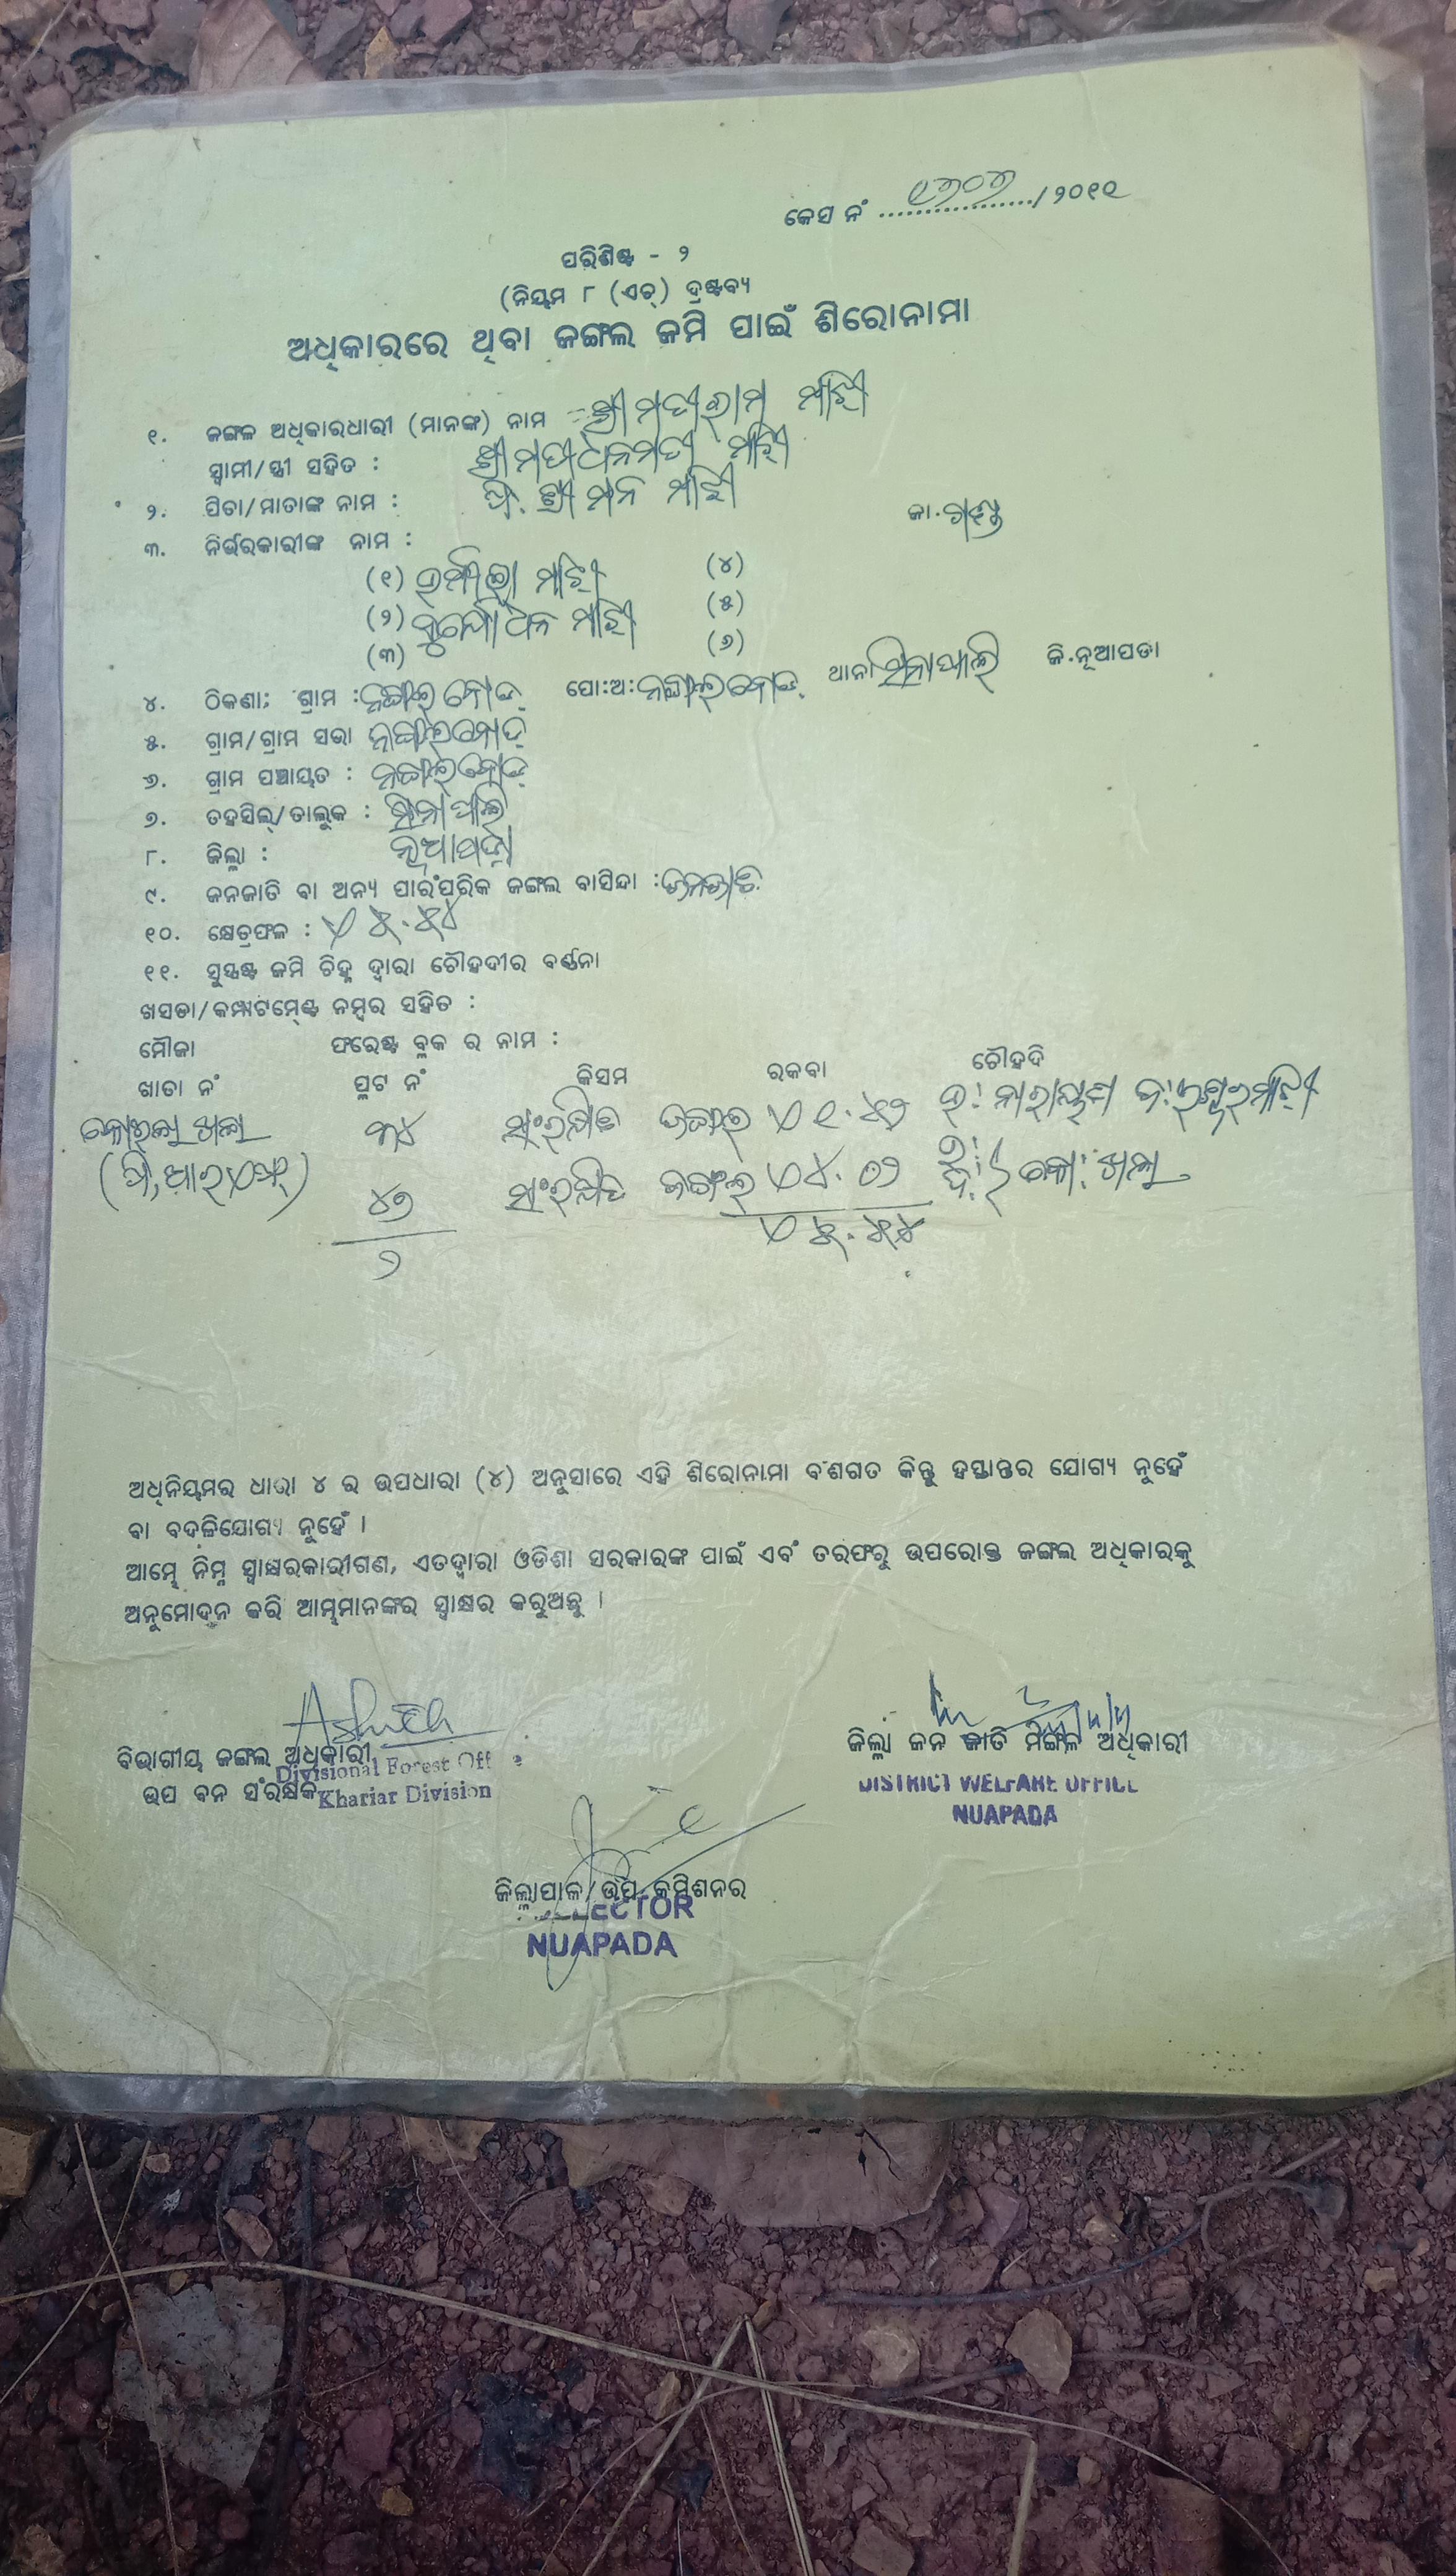 କେସ ନଂ ................./ ୨୦୧୧
ପରିଶିଷ୍ଟ - ୨
(ନିୟମ ୮ (ଏଚ୍) ଦ୍ରଷ୍ଟବ୍ୟ
ଅଧିକାରରେ ଥିବା ଜଙ୍ଗଲ ଜମି ପାଇଁ ଶିରୋନାମା
୧. ଜଙ୍ଗଳ ଅଧିକାରଧାରୀ (ମାନଙ୍କ) ନାମ - ଶ୍ରୀ ମତୀରାମ ମାଝି
ସ୍ୱାମୀ/ସ୍ତ୍ରୀ ସହିତ : ଶ୍ରୀମତୀ ଧନମତୀ ମାଝି
୨. ପିତା/ମାତାଙ୍କ ନାମ : ପି. ଶ୍ରୀ ମନ ମାଝି ଜା. ଗଣ୍ଡ
୩. ନିର୍ଭରକାରୀଙ୍କ ନାମ :
(୧) ଉର୍ମିଳା ମାଝି (୪)
(୨) ଦୁର୍ଯୋଧନ ମାଝି (୫)
(୩) (୬)
୪. ଠିକଣା; ଗ୍ରାମ : ନଙ୍ଗଲବୋଡ଼ ପୋ:ଅ: ନଙ୍ଗଲବୋଡ଼ ଥାନା ସିନାପାଲି ଜି.ନୂଆପଡା
୫. ଗ୍ରାମ/ଗ୍ରାମ ସଭା ନଙ୍ଗଲବୋଡ଼
୬. ଗ୍ରାମ ପଞ୍ଚାୟତ : ନଙ୍ଗଲବୋଡ଼
୭. ତହସିଲ୍/ତାଲୁକ : ସିନାପାଲି
୮. ଜିଲ୍ଲା : ନୂଆପଡ଼ା
୯. ଜନଜାତି ବା ଅନ୍ୟ ପାରଂପରିକ ଜଙ୍ଗଲ ବାସିନ୍ଦା : ଜନଜାତି
୧୦. କ୍ଷେତ୍ରଫଳ : ଏ ୫.୫୪
୧୧. ସୁସ୍ପଷ୍ଟ ଜମି ଚିହ୍ନ ଦ୍ୱାରା ଚୌହଦୀର ବର୍ଣ୍ଣନା
ଖସଡା/କମ୍ପାଟମେଣ୍ଟ ନମ୍ବର ସହିତ :
ମୌଜା ଫରେଷ୍ଟ ବ୍ଲକ ର ନାମ :
ଖାତା ନଂ ପ୍ଲଟ ନଂ କିସମ ରକବା ଚୌହଦି
୩୪ ସଂରକ୍ଷିତ ଜଙ୍ଗଲ ଏ ୧.୫୨ ଉ: ନାରାୟଣ
୪୭ ସଂରକ୍ଷିତ ଜଙ୍ଗଲ ଏ ୪.୦୨
୨ ଏ ୫.୫୪
ଅଧିନିୟମର ଧାରା ୪ ର ଉପଧାରା (୪) ଅନୁସାରେ ଏହି ଶିରୋନାମା ବଂଶଗତ କିନ୍ତୁ ହସ୍ତାନ୍ତର ଯୋଗ୍ୟ ନୁହେଁ
ବା ବଦଳିଯୋଗ୍ୟ ନୁହେଁ ।
ଆମ୍ଭେ ନିମ୍ନ ସ୍ୱାକ୍ଷରକାରୀଗଣ, ଏତଦ୍ୱାରା ଓଡିଶା ସରକାରଙ୍କ ପାଇଁ ଏବଂ ତରଫରୁ ଉପରୋକ୍ତ ଜଙ୍ଗଲ ଅଧିକାରକୁ
ଅନୁମୋଦନ କରି ଆମ୍ଭମାନଙ୍କର ସ୍ୱାକ୍ଷର କରୁଅଛୁ ।
ବିଭାଗୀୟ ଜଙ୍ଗଲ ଅଧିକାରୀ ଜିଲ୍ଲା ଜନ ଜାତି ମଙ୍ଗଳ ଅଧିକାରୀ
Divisional Forest Off
ଉପ ବନ ସଂରକ୍ଷକ Khariar Division
DISTRICT WELFARE OFFICE
NUAPADA
ଜିଲ୍ଲାପାଳ/ଉପ କମିଶନର
COLLECTOR
NUAPADA